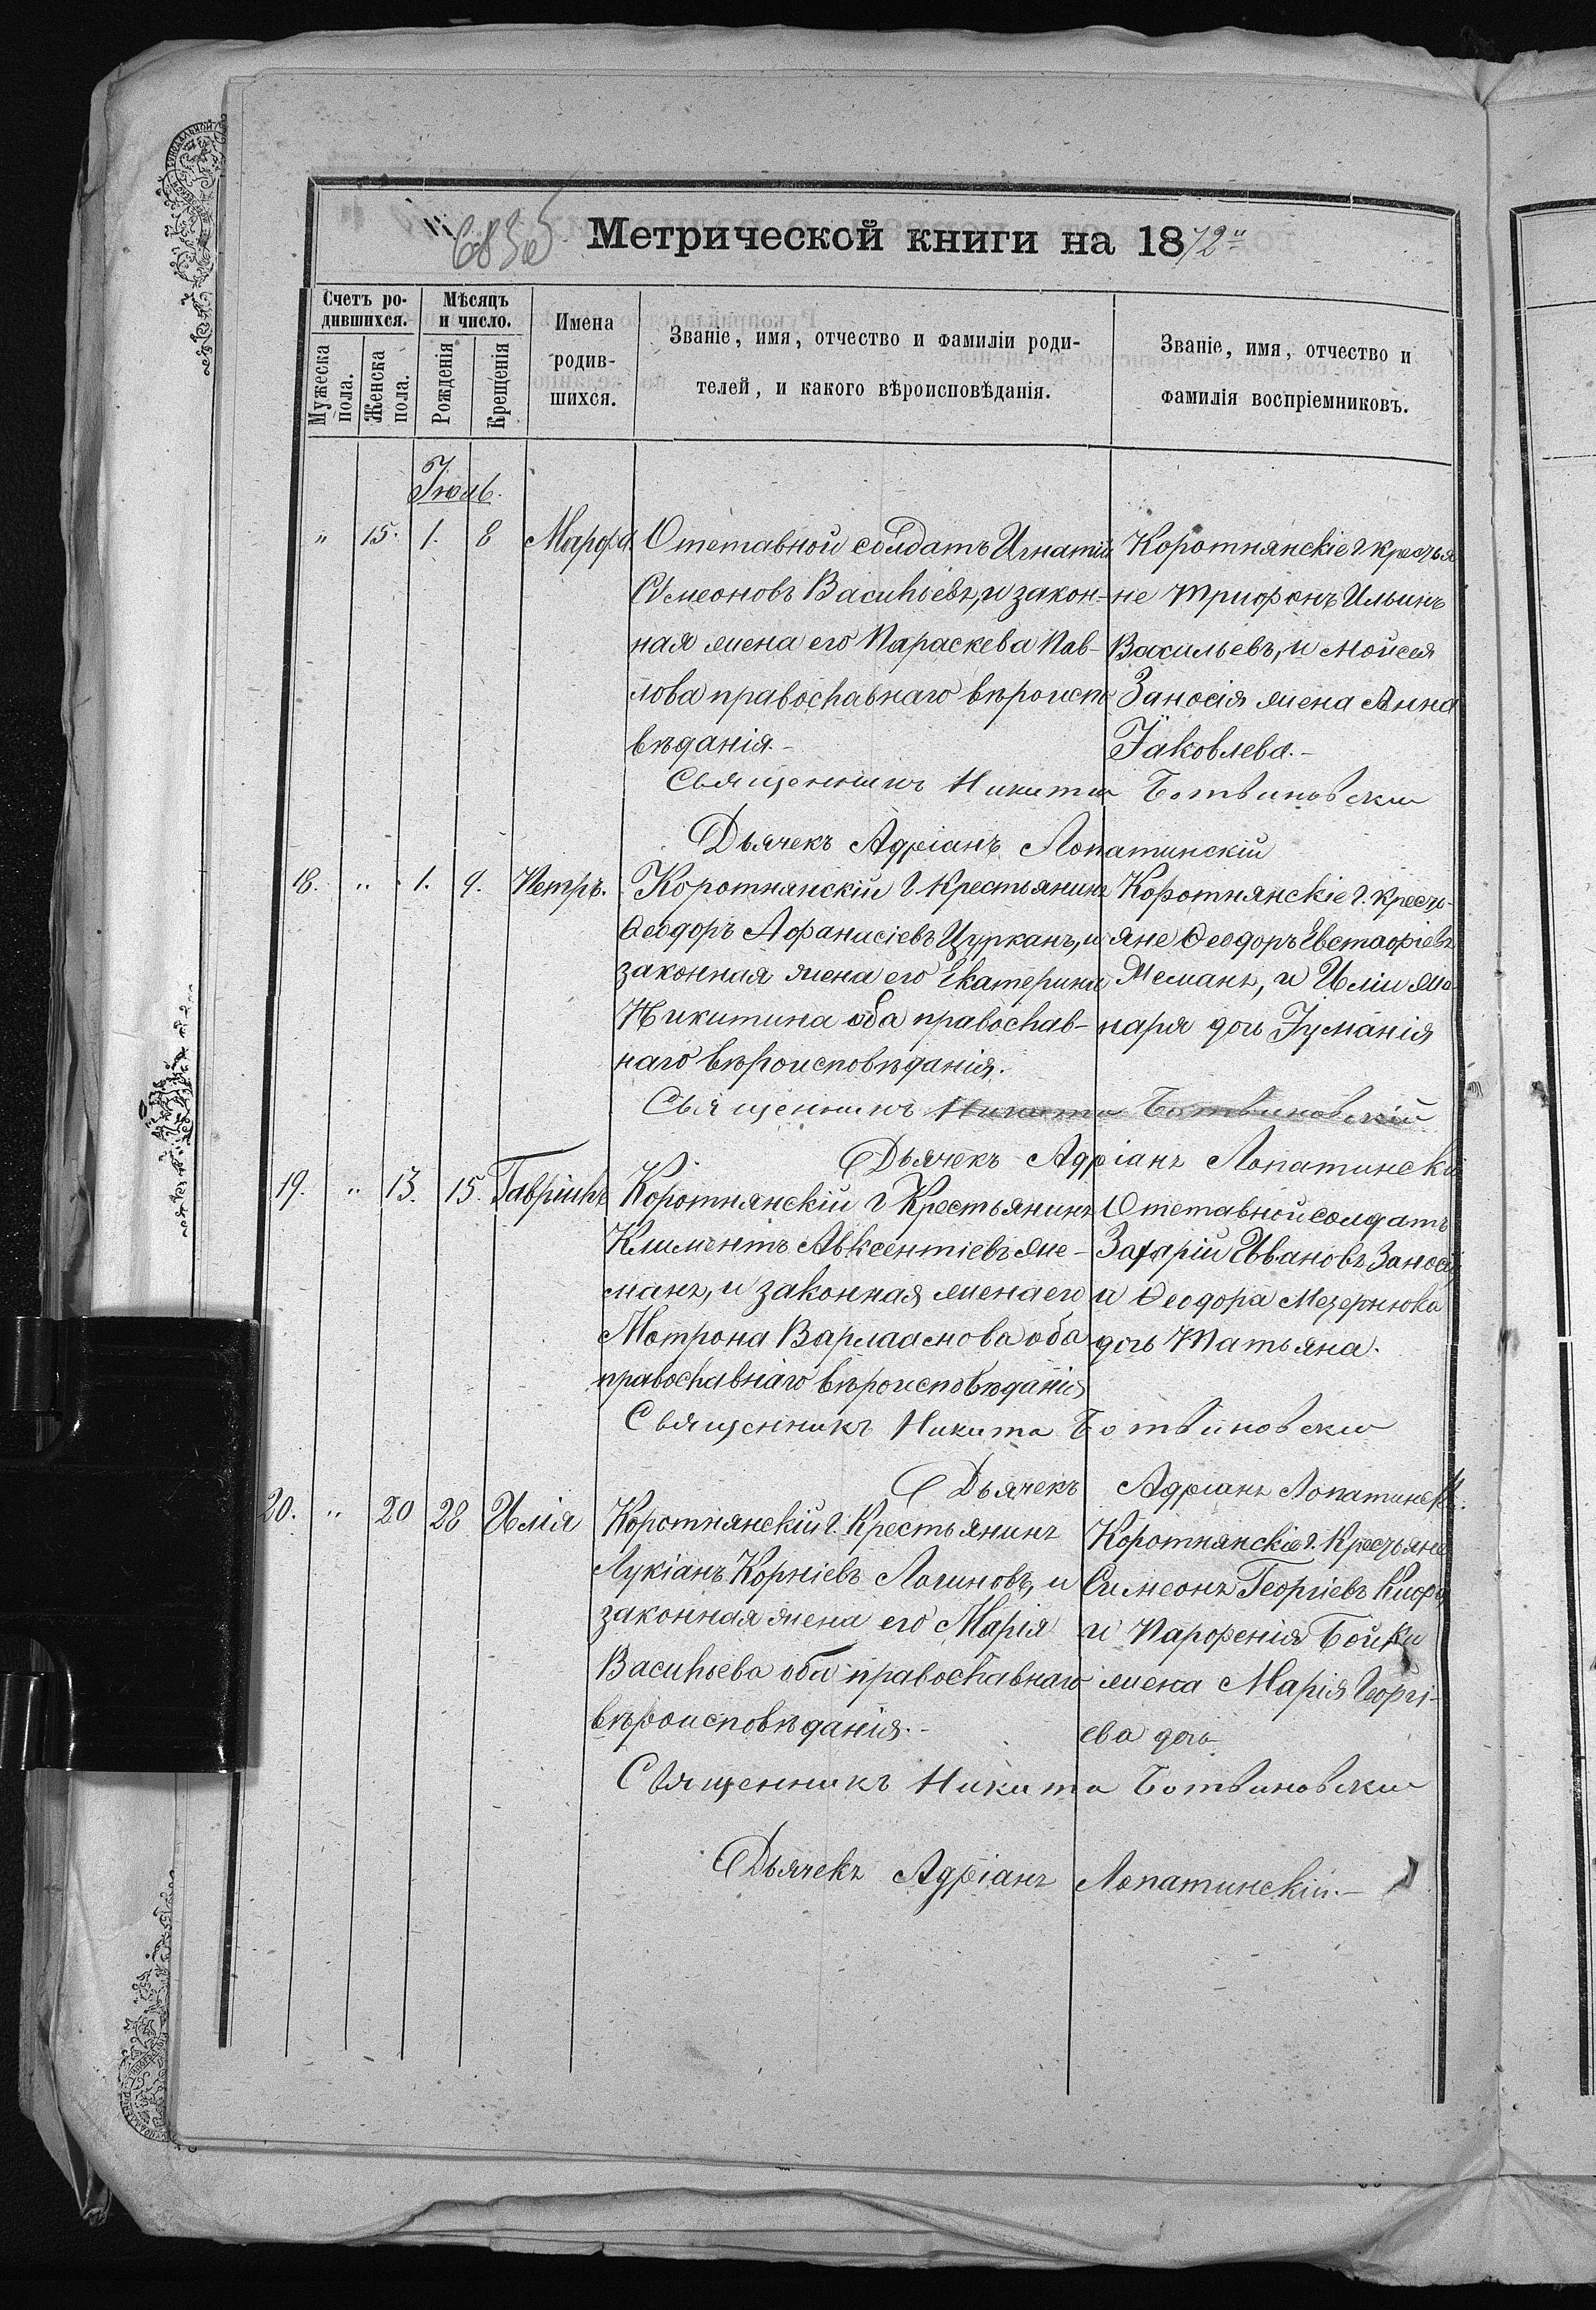 6835
Метрической книги на 1872
Счетъ родившихся.
Мужеска пола.
Женска пола.
Мѣсяцъ и число.
Рожденія
Крещенія
Имена родившихся.
Званіе, имя, отчество и фамиліи родителей, и какого вѣроисповѣданія.
Званіе, имя, отчество и фамилія воспріемниковъ.
Іюль.
" 15. 1. 8 Марфа.
Отставной солдатъ Игнатій
Сѵмеоновъ Васильевъ, и закон-
ная жена его Параскева Пав-
лова православнаго вѣроиспо
вѣданія.-
Коротнянскіе г крестья
не Трифонъ Ильинъ
Васильевъ, и Мойсея
Заносія жена Анна
Іаковлева.-
Священникъ Никита Ботвиновскій
Дьячекъ Адріанъ Лопатинскій
18. " 1. 9. Петръ.
Коротнянскій г. Крестьянинъ
Ѳеодоръ Афанасіевъ Цурканъ, и
законная жена его Екатерина
Никитина оба православ-
наго вѣроисповѣданія.
Коротнянскіе г. кресть-
яне Ѳеодоръ Евстафіевъ
и Иліи
наря дочь
Священникъ Никита Ботвиновскій
Дьячекъ Адріанъ Лопатинскі
19. " 13. 15. Гавріилъ
Коротнянскій г Крестьянинъ
Климентъ Авксентіевъ Яне-
манъ, и законная жена его
Матрона Варлаамова оба
православнаго вѣроисповѣданія
Отставной солдатъ
Захарій Ивановъ Заносій
и Ѳеодора Мезернюка
дочь Татьяна.
Священникъ Никита Ботвиновскій
Дьячекъ Адріанъ Лопатинскі.
20. " 20 28 Илія
Коротнянскій г. Крестьянинъ
Лукіанъ Корніевъ Логиновъ, и
законная жена его Марія
Васильева оба православнаго
вѣроисповѣданія.-
Коротнянскіе г. Крестьяне
Симеонъ Георгіевъ
и Парфенія Бойки
жена Марія Георгі-
ева дочь
Священникъ Никита Ботвиновскій
Дьячекъ Адріанъ Лопатинскій.-